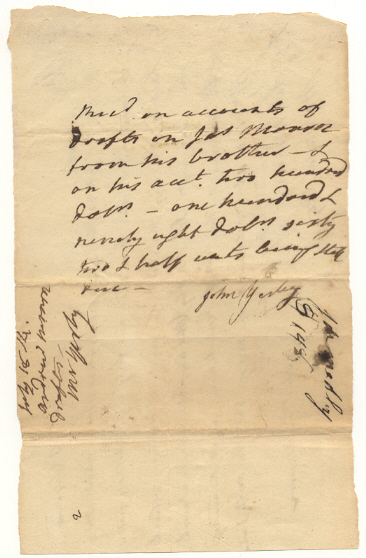 Recd. on accounts of
drafts on Jas Monroe
from his brother — &
on his acct. two hundred
dolrs. — one hundred &
ninety eight dolrs sixty
two & half cents being still
due —
John Yerby
John Yerby
drafts
Andrew Monroe
July 18
2